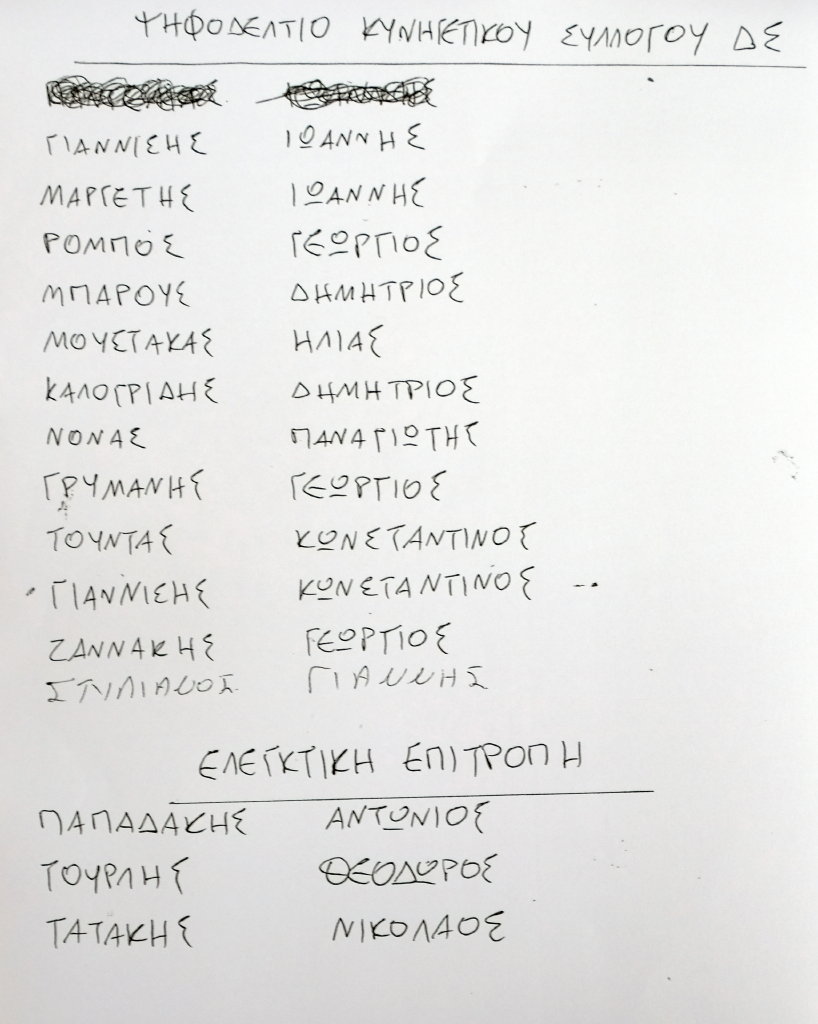 ΨΗΦΟΔΕΛΤΙΟ ΚΥΝΗΓΕΤΙΚΟΥ ΣΥΛΛΟΓΟΥ ΔΣ
ΓΙΑΝΝΙΣΗΣ ΙΩΑΝΝΗΣ
ΜΑΡΓΕΤΗΣ ΙΩΑΝΝΗΣ
ΡΟΜΠΟΣ ΓΕΩΡΓΙΟΣ
ΜΠΑΡΟΥΣ ΔΗΜΗΤΡΙΟΣ
ΜΟΥΣΤΑΚΑΣ ΗΛΙΑΣ
ΚΑΛΟΓΡΙΔΗΣ ΔΗΜΗΤΡΙΟΣ
ΝΟΝΑΣ ΠΑΝΑΓΙΩΤΗΣ
ΓΡΥΜΑΝΗΣ ΓΕΩΡΓΙΟΣ
ΤΟΥΝΤΑΣ ΚΩΝΣΤΑΝΤΙΝΟΣ
ΓΙΑΝΝΙΣΗΣ ΚΩΝΣΤΑΝΤΙΝΟΣ
ΖΑΝΝΑΚΗΣ ΓΕΩΡΓΙΟΣ
ΣΤΥΛΙΑΝΟΣ ΓΙΑΝΝΗΣ
ΕΛΕΓΚΤΙΚΗ ΕΠΙΤΡΟΠΗ
ΠΑΠΑΔΑΚΗΣ ΑΝΤΩΝΙΟΣ
ΤΟΥΡΛΗΣ ΘΕΟΔΩΡΟΣ
ΤΑΤΑΚΗΣ ΝΙΚΟΛΑΟΣ